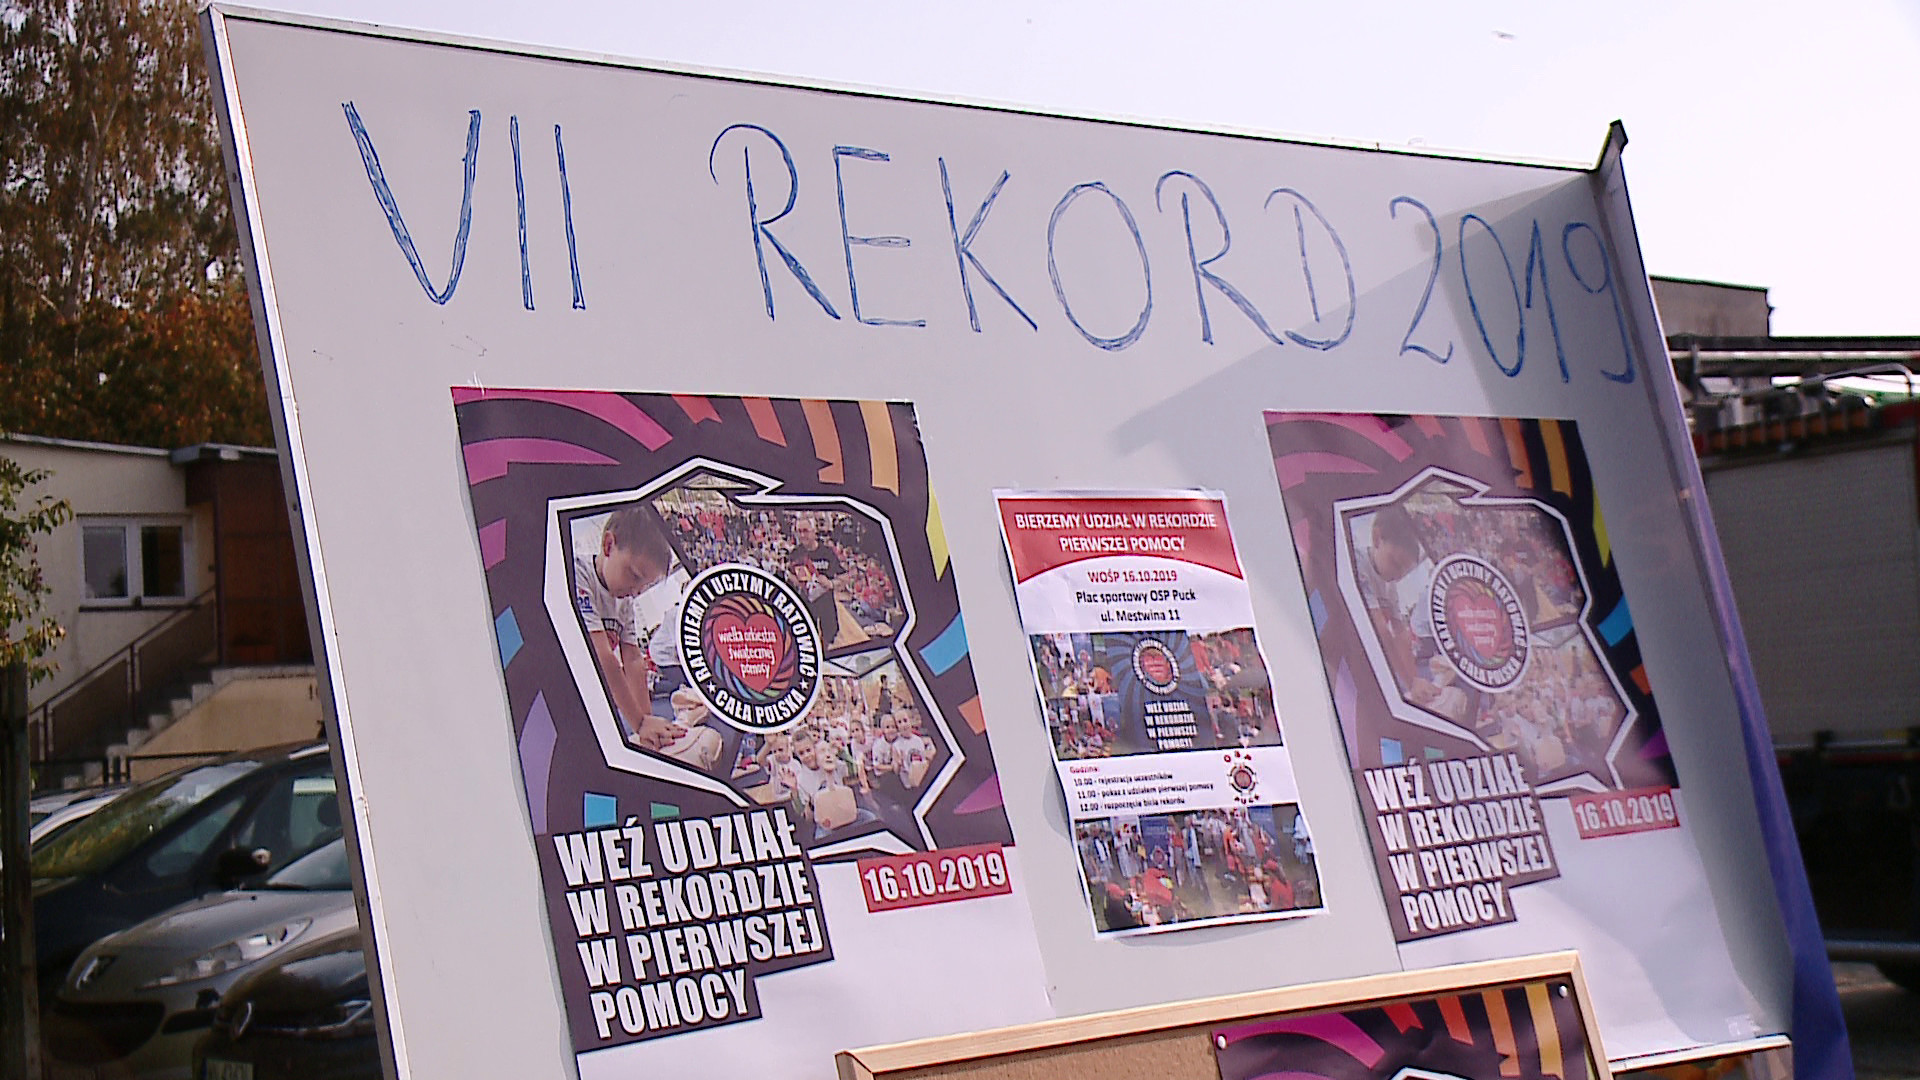 VII REKORD 2019
RATUJEMY I UCZYMY RATOWAĆ
wielka orkiestra
świątecznej
pomocy
★ CAŁA POLSKA ★
WEŹ UDZIAŁ
W REKORDZIE
W PIERWSZEJ
POMOCY
16.10.2019
BIERZEMY UDZIAŁ W REKORDZIE
PIERWSZEJ POMOCY
WOŚP 16.10.2019
Plac sportowy OSP Puck
ul. Mestwina 11
WEŹ UDZIAŁ
W REKORDZIE
W PIERWSZEJ
POMOCY!
Godzina:
10.00 - rejestracja uczestników
11.00 - pokaz z udziałem pierwszej pomocy
12.00 - rozpoczęcie bicia rekordu
RATUJEMY I UCZYMY RATOWAĆ
wielka orkiestra
świątecznej
pomocy
CAŁA POLSKA
WEŹ UDZIAŁ
W REKORDZIE
W PIERWSZEJ
POMOCY
16.10.2019